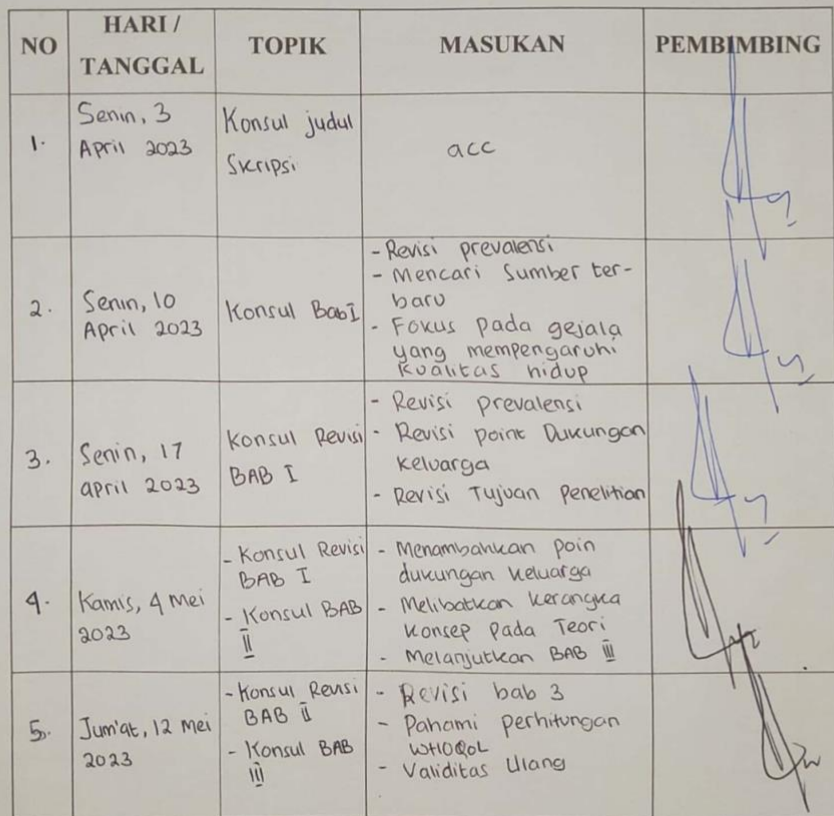 NO
HARI /
TANGGAL
TOPIK
MASUKAN
PEMBIMBING
1.
Senin, 3
April 2023
Konsul judul
Skripsi
acc
2.
Senin, 10
April 2023
Konsul Bab I
- Revisi prevalensi
- Mencari Sumber ter-
baru
- Fokus pada gejala
yang mempengaruhi
kualitas hidup
3.
Senin, 17
april 2023
Konsul Revisi
BAB I
- Revisi prevalensi
- Revisi point Dukungan
keluarga
- Revisi Tujuan Penelitian
4.
Kamis, 4 Mei
2023
- Konsul Revisi
BAB I
- Konsul BAB
II
- Menambahkan poin
dukungan keluarga
- Melibatkan kerangka
konsep pada Teori
- Melanjutkan BAB III
5.
Jum'at, 12 Mei
2023
- Konsul Revisi
BAB II
- Konsul BAB
III
- Revisi bab 3
- Pahami perhitungan
WHOQoL
- Validitas Ulang